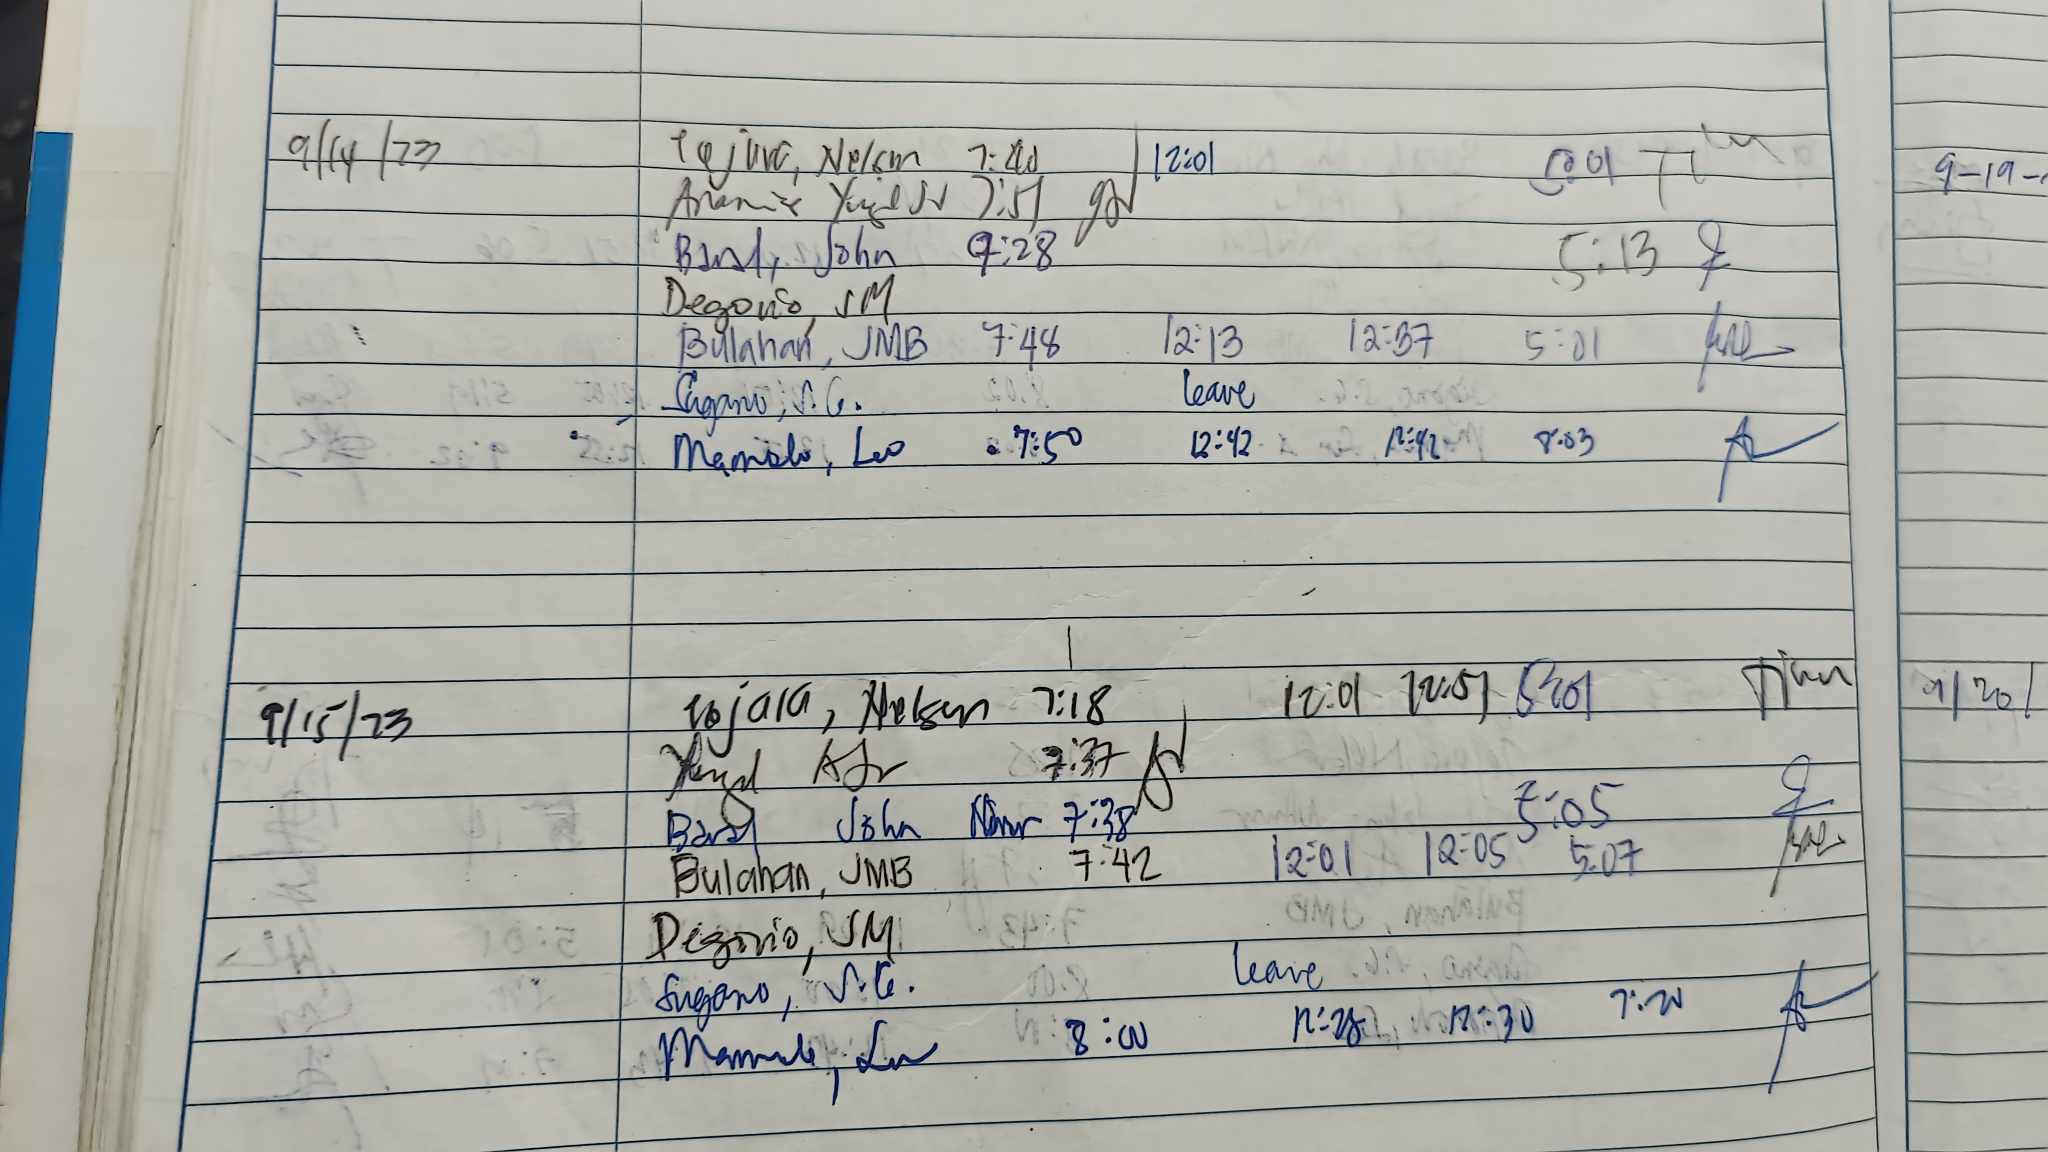 9/14/23 Tojara, Nelson 7:40 12:01 5:01
Yngl Jr 7:51
Baral, John 7:28 5:13
Degorio, JM
Bulahan, JMB 7:48 12:13 12:37 5:01
Sugano, S.G. leave
Mamalo, Leo 7:50 12:42 12:42 8:03
9/15/23 Tojara, Nelson 7:18 12:01 12:51 5:01
7:37
Baral John 7:38 5:05
Bulahan, JMB 7:42 12:01 12:05 5:07
Degorio, JM
Sugano, S.G. leave
8:00 12:28 12:30 7:20
9-19-
9/20/